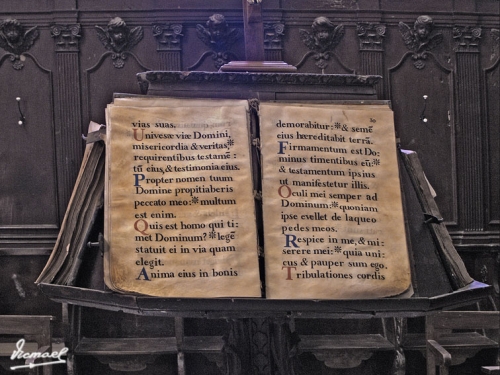 vias suas.
Universæ viæ Domini,
misericordia & veritas,*
requirentibus testamē:
tū ejus, & testimonia eius.
Propter nomen tuum
Domine propitiaberis
peccato meo: * multum
est enim.
Quis est homo qui ti:
met Dominum? * legē
statuit ei in via quam
elegit.
Anima eius in bonis
demorabitur: * & semē
eius hæreditabit terrā.
Firmamentum est Do:
minus timentibus eū: *
& testamentum ipsius
ut manifestetur illis.
Oculi mei semper ad
Dominum: * quoniam
ipse evellet de laqueo
pedes meos.
Respice in me, & mi:
serere mei: * quia uni:
cus & pauper sum ego.
Tribulationes cordis
Vicmael